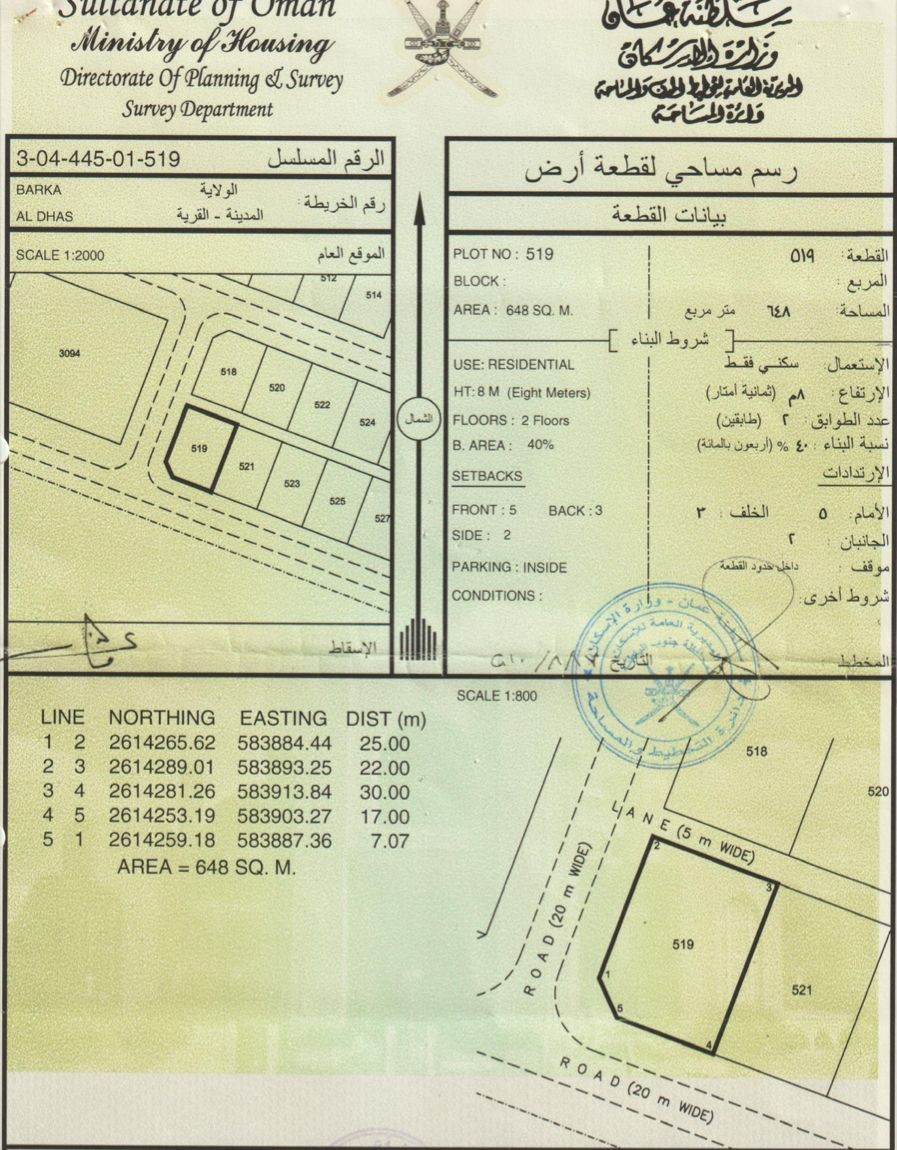 Sultanate of Oman
Ministry of Housing
Directorate Of Planning & Survey
Survey Department
سلطنة عمان
وزارة الإسكان
المديرية العامة للتخطيط والمساحة
دائرة المساحة
3-04-445-01-519 الرقم المسلسل
BARKA الولاية
رقم الخريطة :
AL DHAS المدينة - القرية
SCALE 1:2000 الموقع العام
512
514
3094
518
520
522
524
519
521
523
525
527
الإسقاط
الشمال
رسم مساحي لقطعة أرض
بيانات القطعة
PLOT NO : 519 القطعة : ٥١٩
BLOCK : المربع :
AREA : 648 SQ. M. المساحة: ٦٤٨ متر مربع
شروط البناء
USE: RESIDENTIAL الإستعمال: سكني فقط
HT: 8 M (Eight Meters) الإرتفاع : ٨م (ثمانية أمتار)
FLOORS : 2 Floors عدد الطوابق : ٢ (طابقين)
B. AREA : 40% نسبة البناء : ٤٠ % (أربعون بالمائة)
SETBACKS الإرتدادات
FRONT : 5 BACK : 3 الأمام: ٥ الخلف : ٣
SIDE : 2 الجانبان : ٢
PARKING : INSIDE موقف : داخل حدود القطعة
CONDITIONS : شروط أخرى:
المخطط : التاريخ
SCALE 1:800
LINE NORTHING EASTING DIST (m)
1 2 2614265.62 583884.44 25.00
2 3 2614289.01 583893.25 22.00
3 4 2614281.26 583913.84 30.00
4 5 2614253.19 583903.27 17.00
5 1 2614259.18 583887.36 7.07
AREA = 648 SQ. M.
518
520
LANE (5 m WIDE)
2
3
ROAD (20 m WIDE)
519
1
521
5
4
ROAD (20 m WIDE)